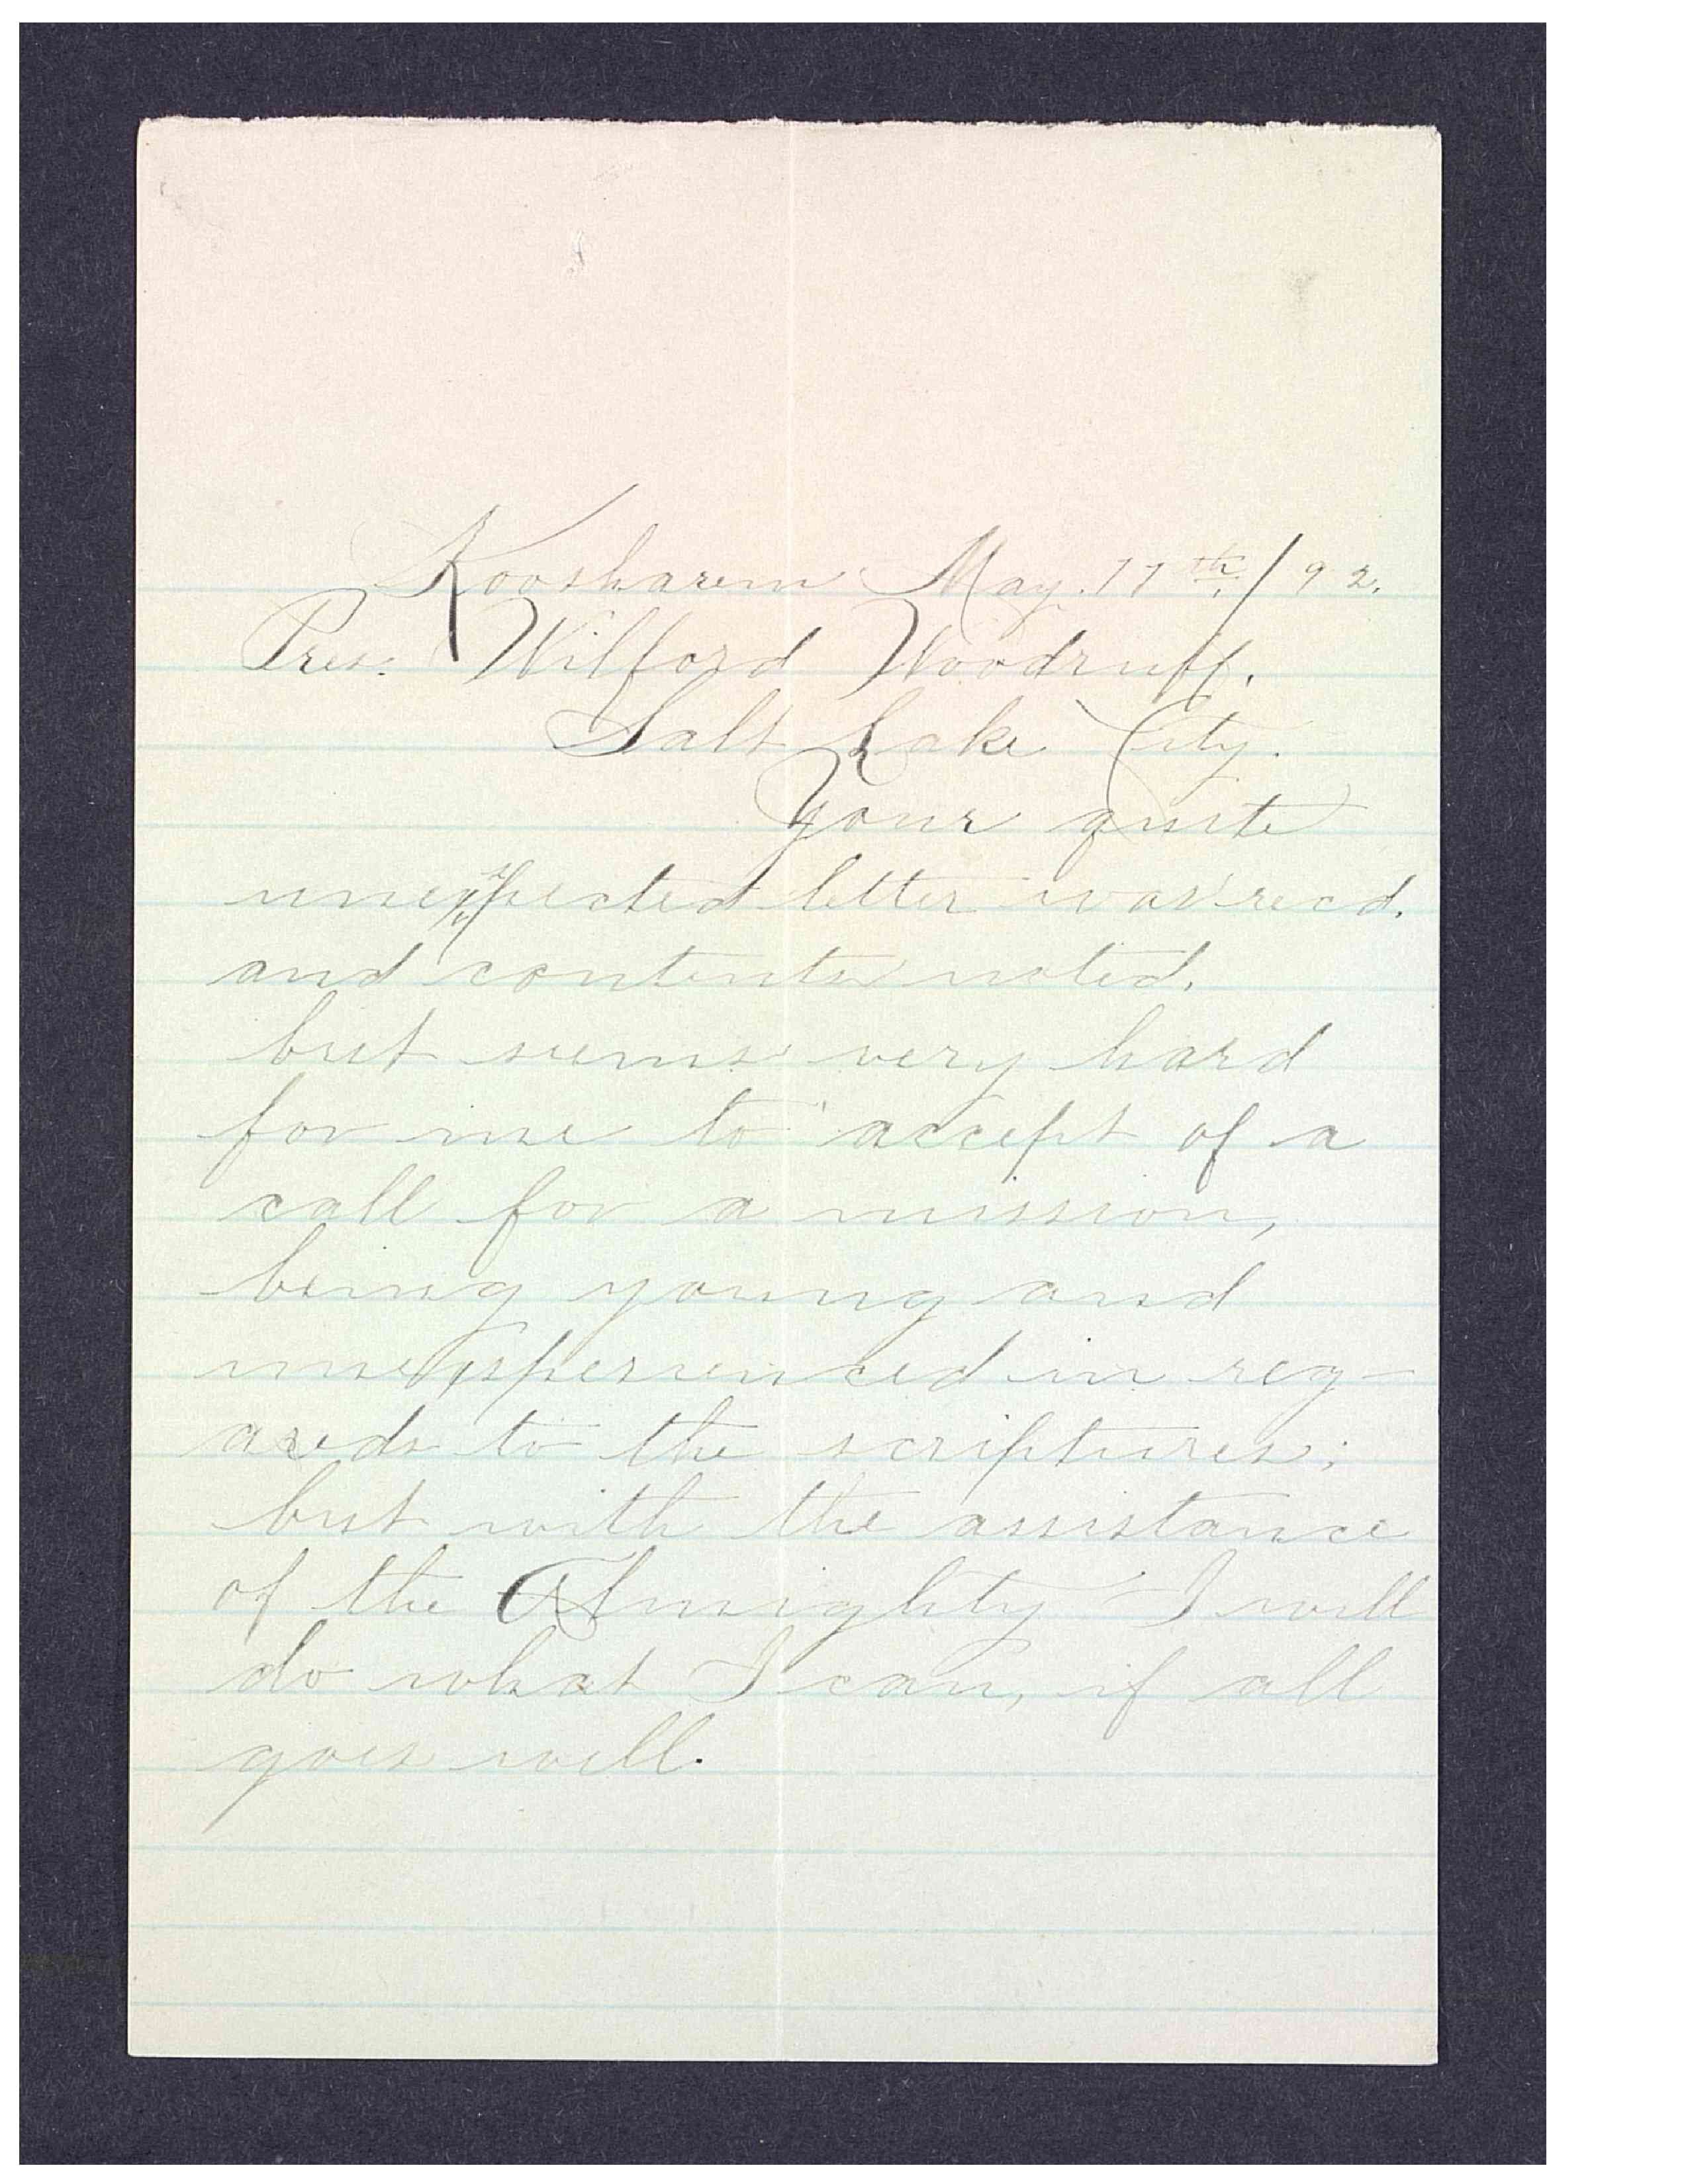 Koosharem May. 17th./92.
Pres. Wilford Woodruff.
Salt Lake City.
Your quite
unexpected letter was recd.
and contents noted.
but seems very hard
for me to accept of a
call for a mission,
being young and
unexsperienced in reg-
areds to the scriptures;
but with the assistance
of the Almighty I will
do what I can, if all
goes well.